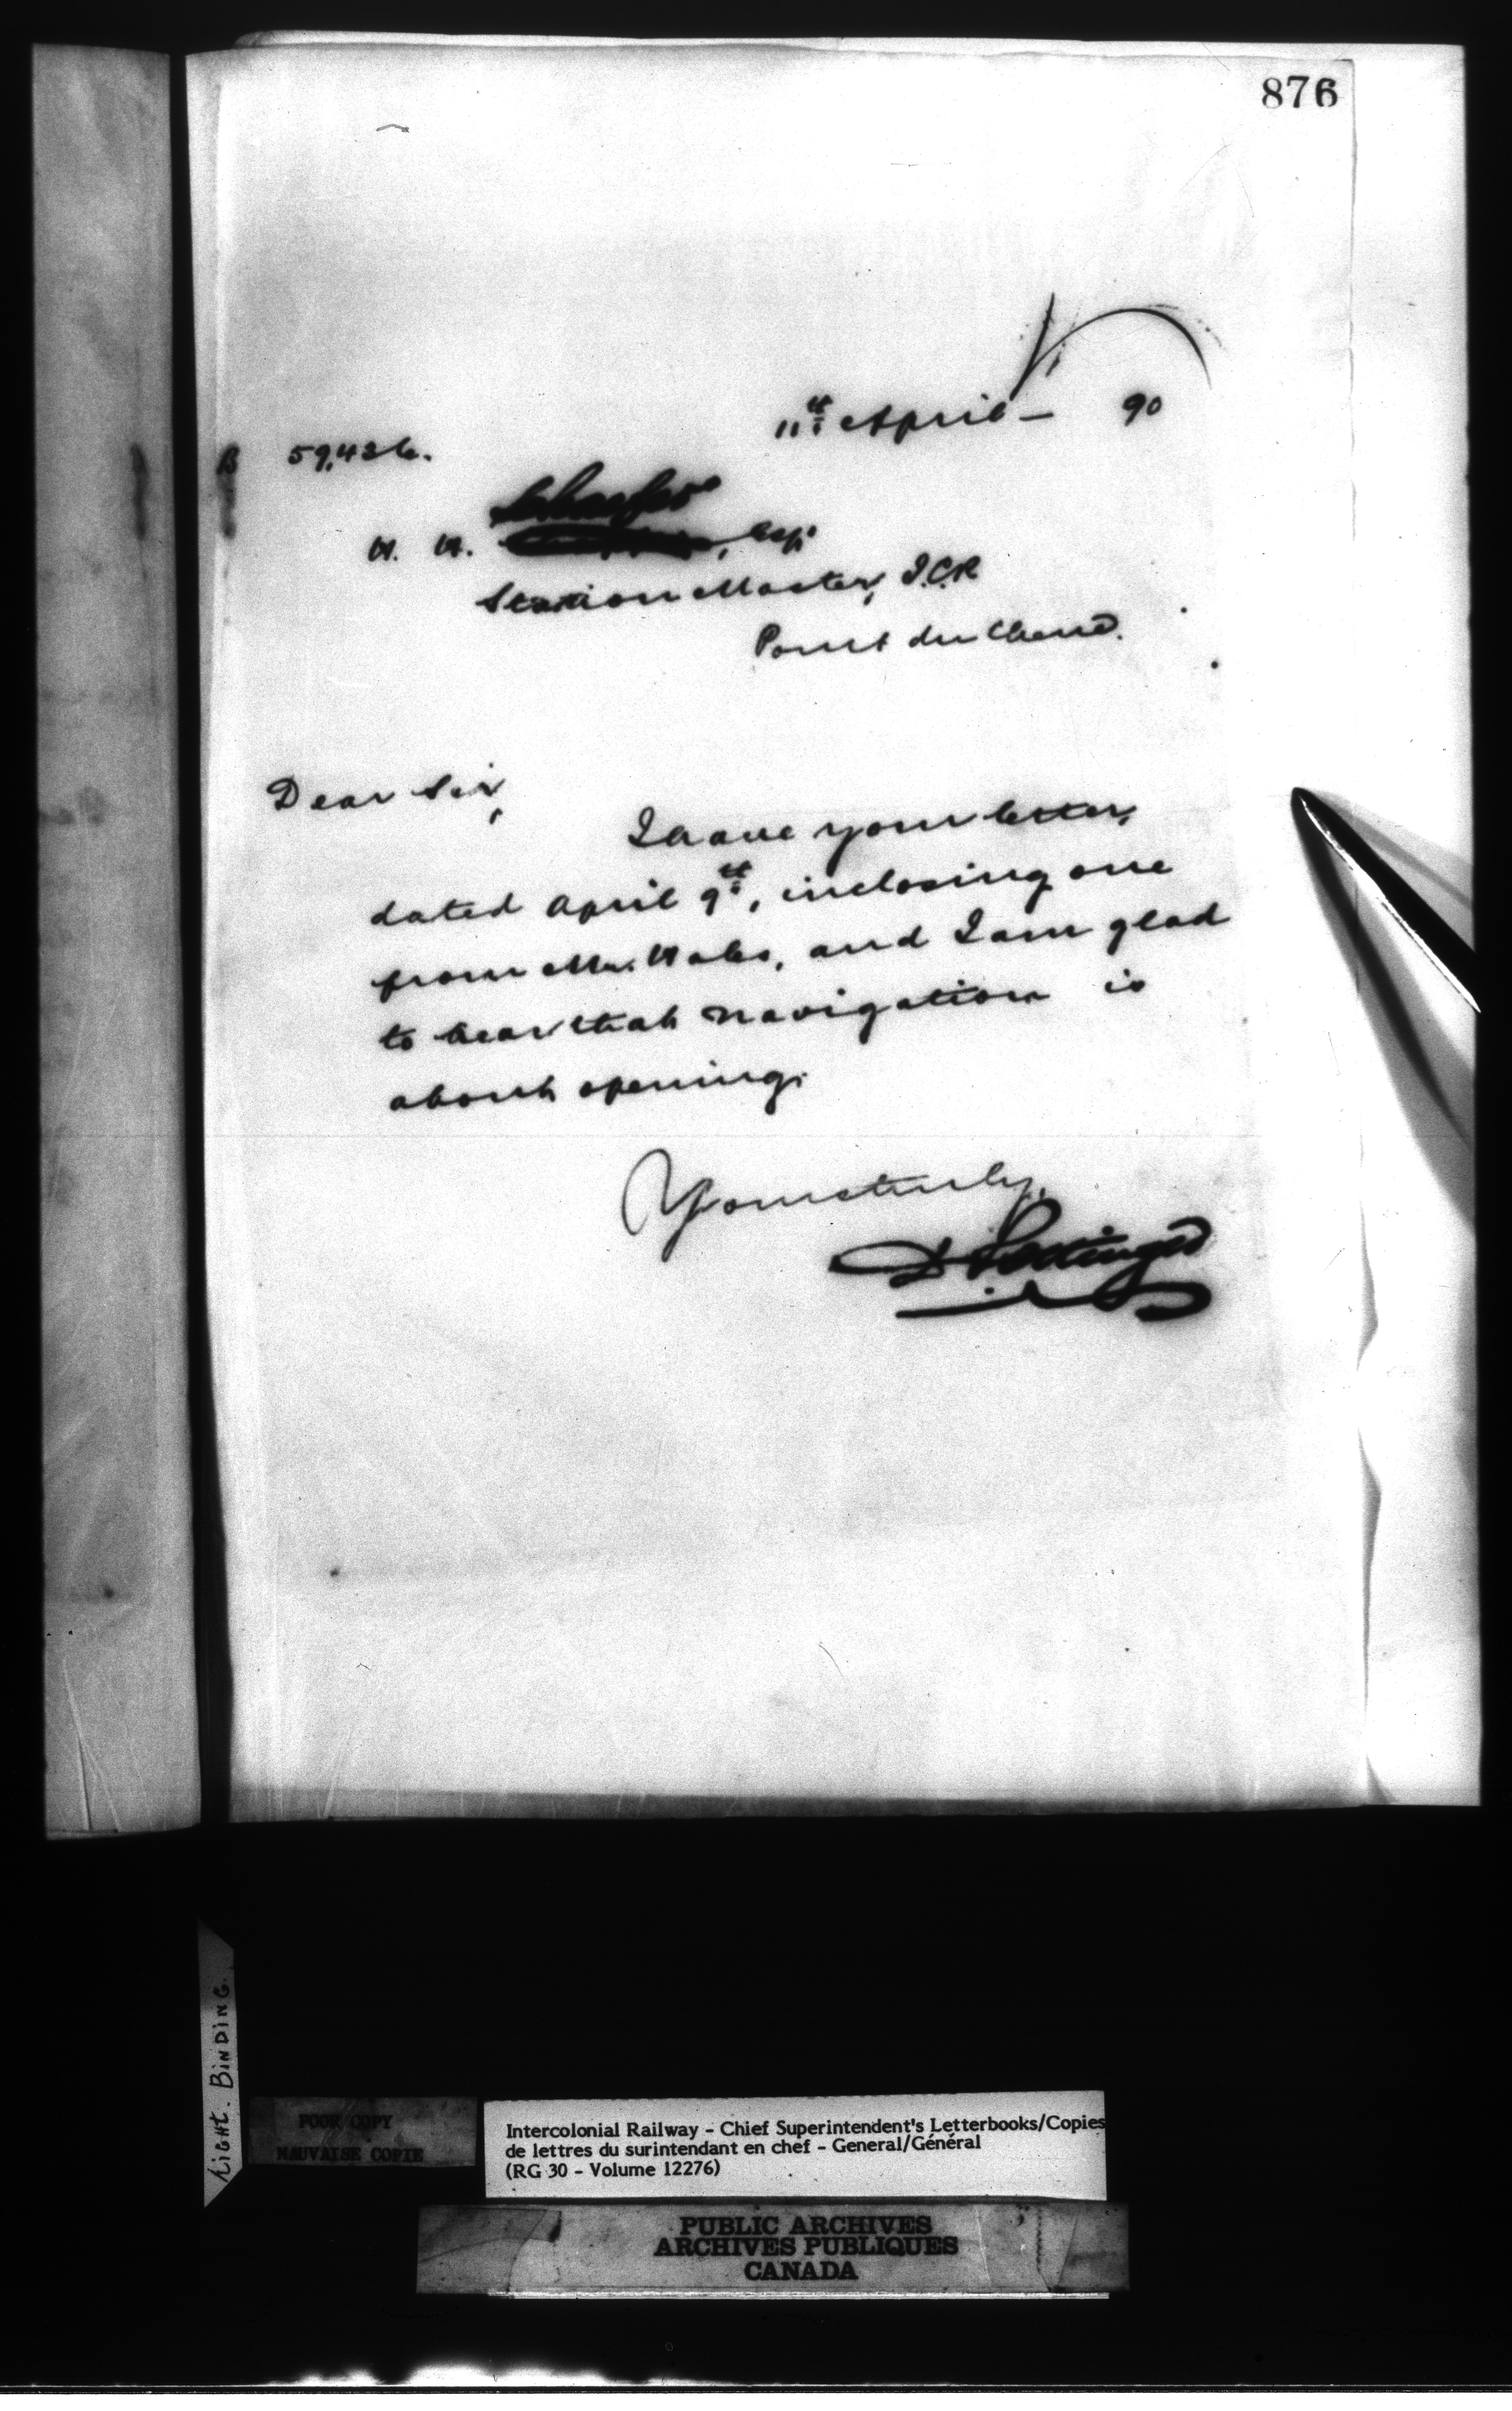 876
11th April — 90
B 59,436.
H. H. Schaefer, Esq.
Station Master, I.C.R
Point du Chene.
Dear Sir,
I have your letter,
dated April 9th, inclosing one
from Mr. Hales, and I am glad
to hear that navigation is
about opening.
Yours truly,
D Pottinger
Light. Binding.
POOR COPY
MAUVAISE COPIE
Intercolonial Railway - Chief Superintendent's Letterbooks/Copies
de lettres du surintendant en chef - General/Général
(RG 30 - Volume 12276)
PUBLIC ARCHIVES
ARCHIVES PUBLIQUES
CANADA